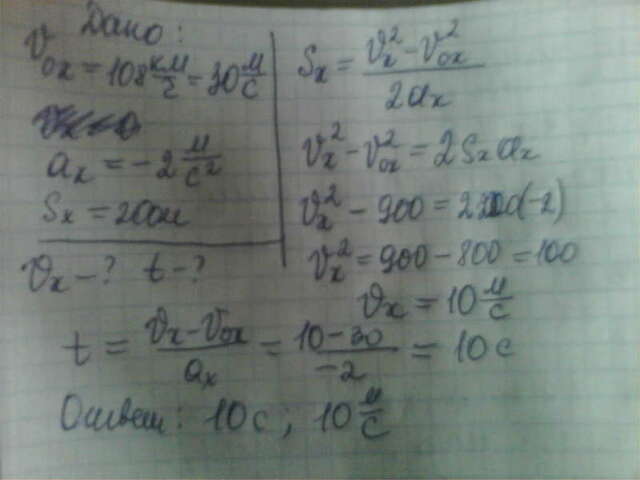 Дано:
v₀ₓ = 108 км/г = 30 м/с
aₓ = -2 м/с²
Sₓ = 200м
vₓ - ? t - ?
Sₓ = (vₓ² - v₀ₓ²)/(2aₓ)
vₓ² - v₀ₓ² = 2Sₓaₓ
vₓ² - 900 = 2 (-2)
vₓ² = 900 - 800 = 100
vₓ = 10 м/с
t = (vₓ - v₀ₓ)/aₓ = (10 - 30)/(-2) = 10 с
Ответ: 10 с ; 10 м/с